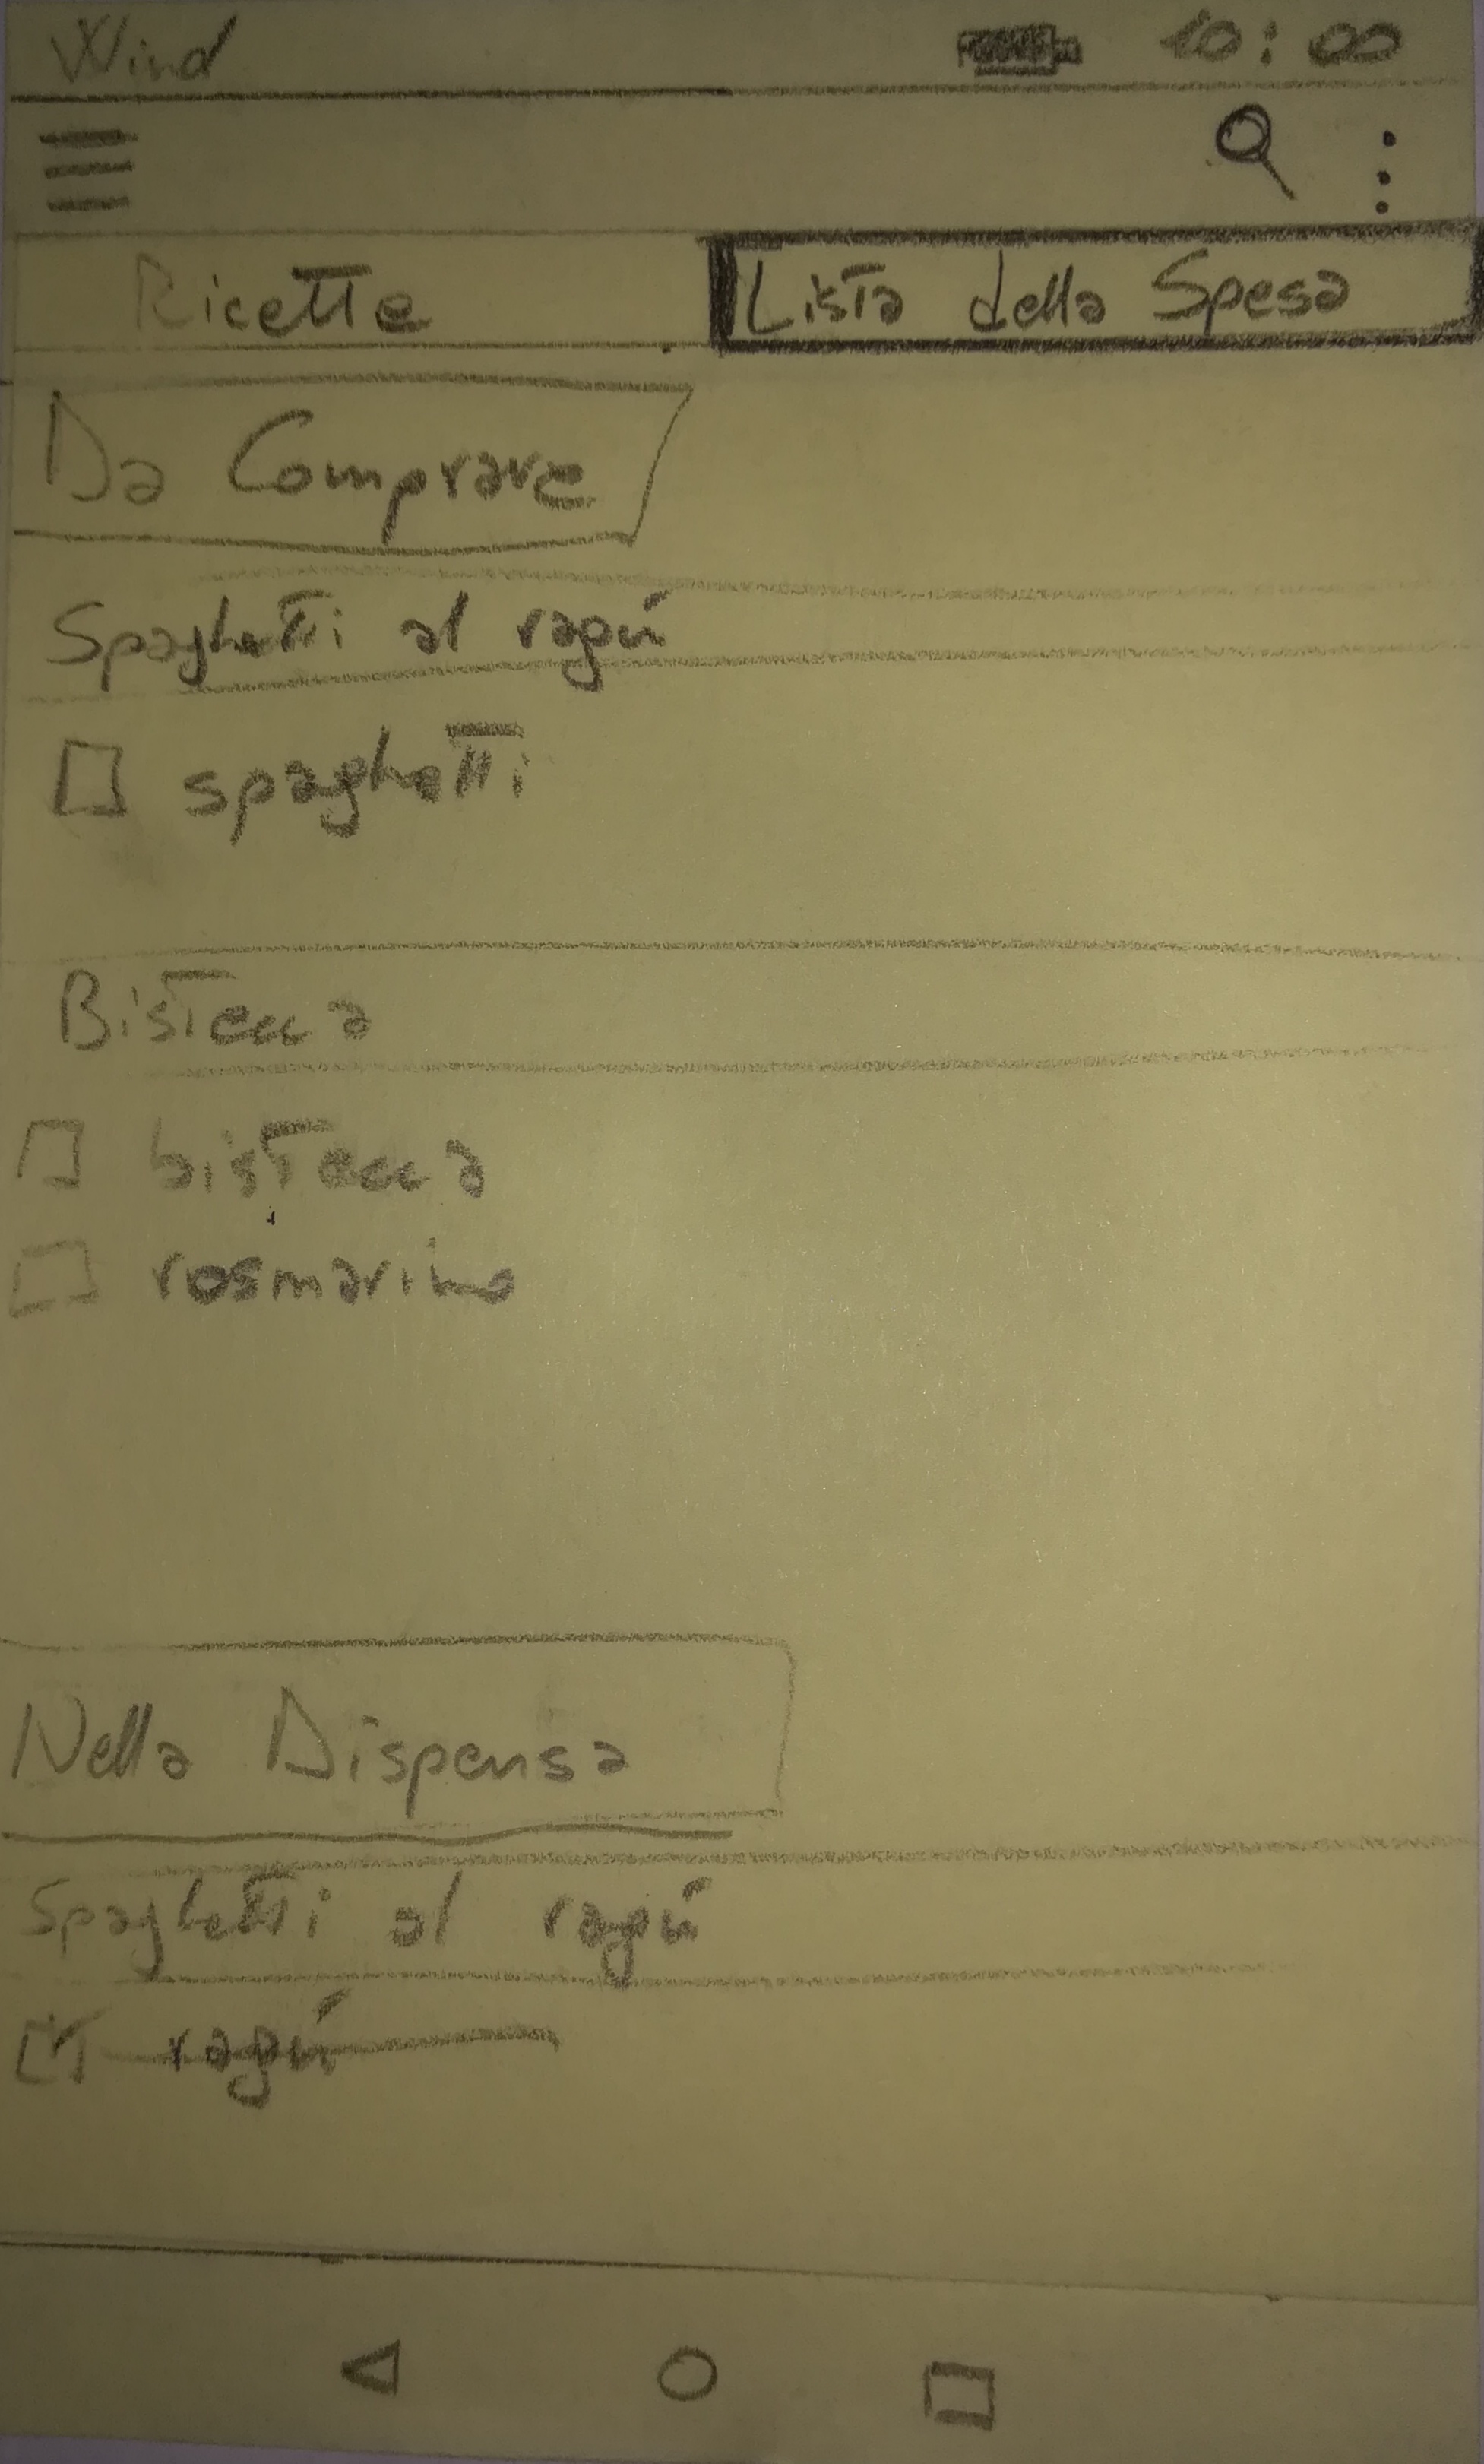 Wind 10:00
Ricette Lista della Spesa
Da Comprare
Spaghetti al ragú
spaghetti
Bistecca
bistecca
rosmarino
Nella Dispensa
Spaghetti al ragú
ragú